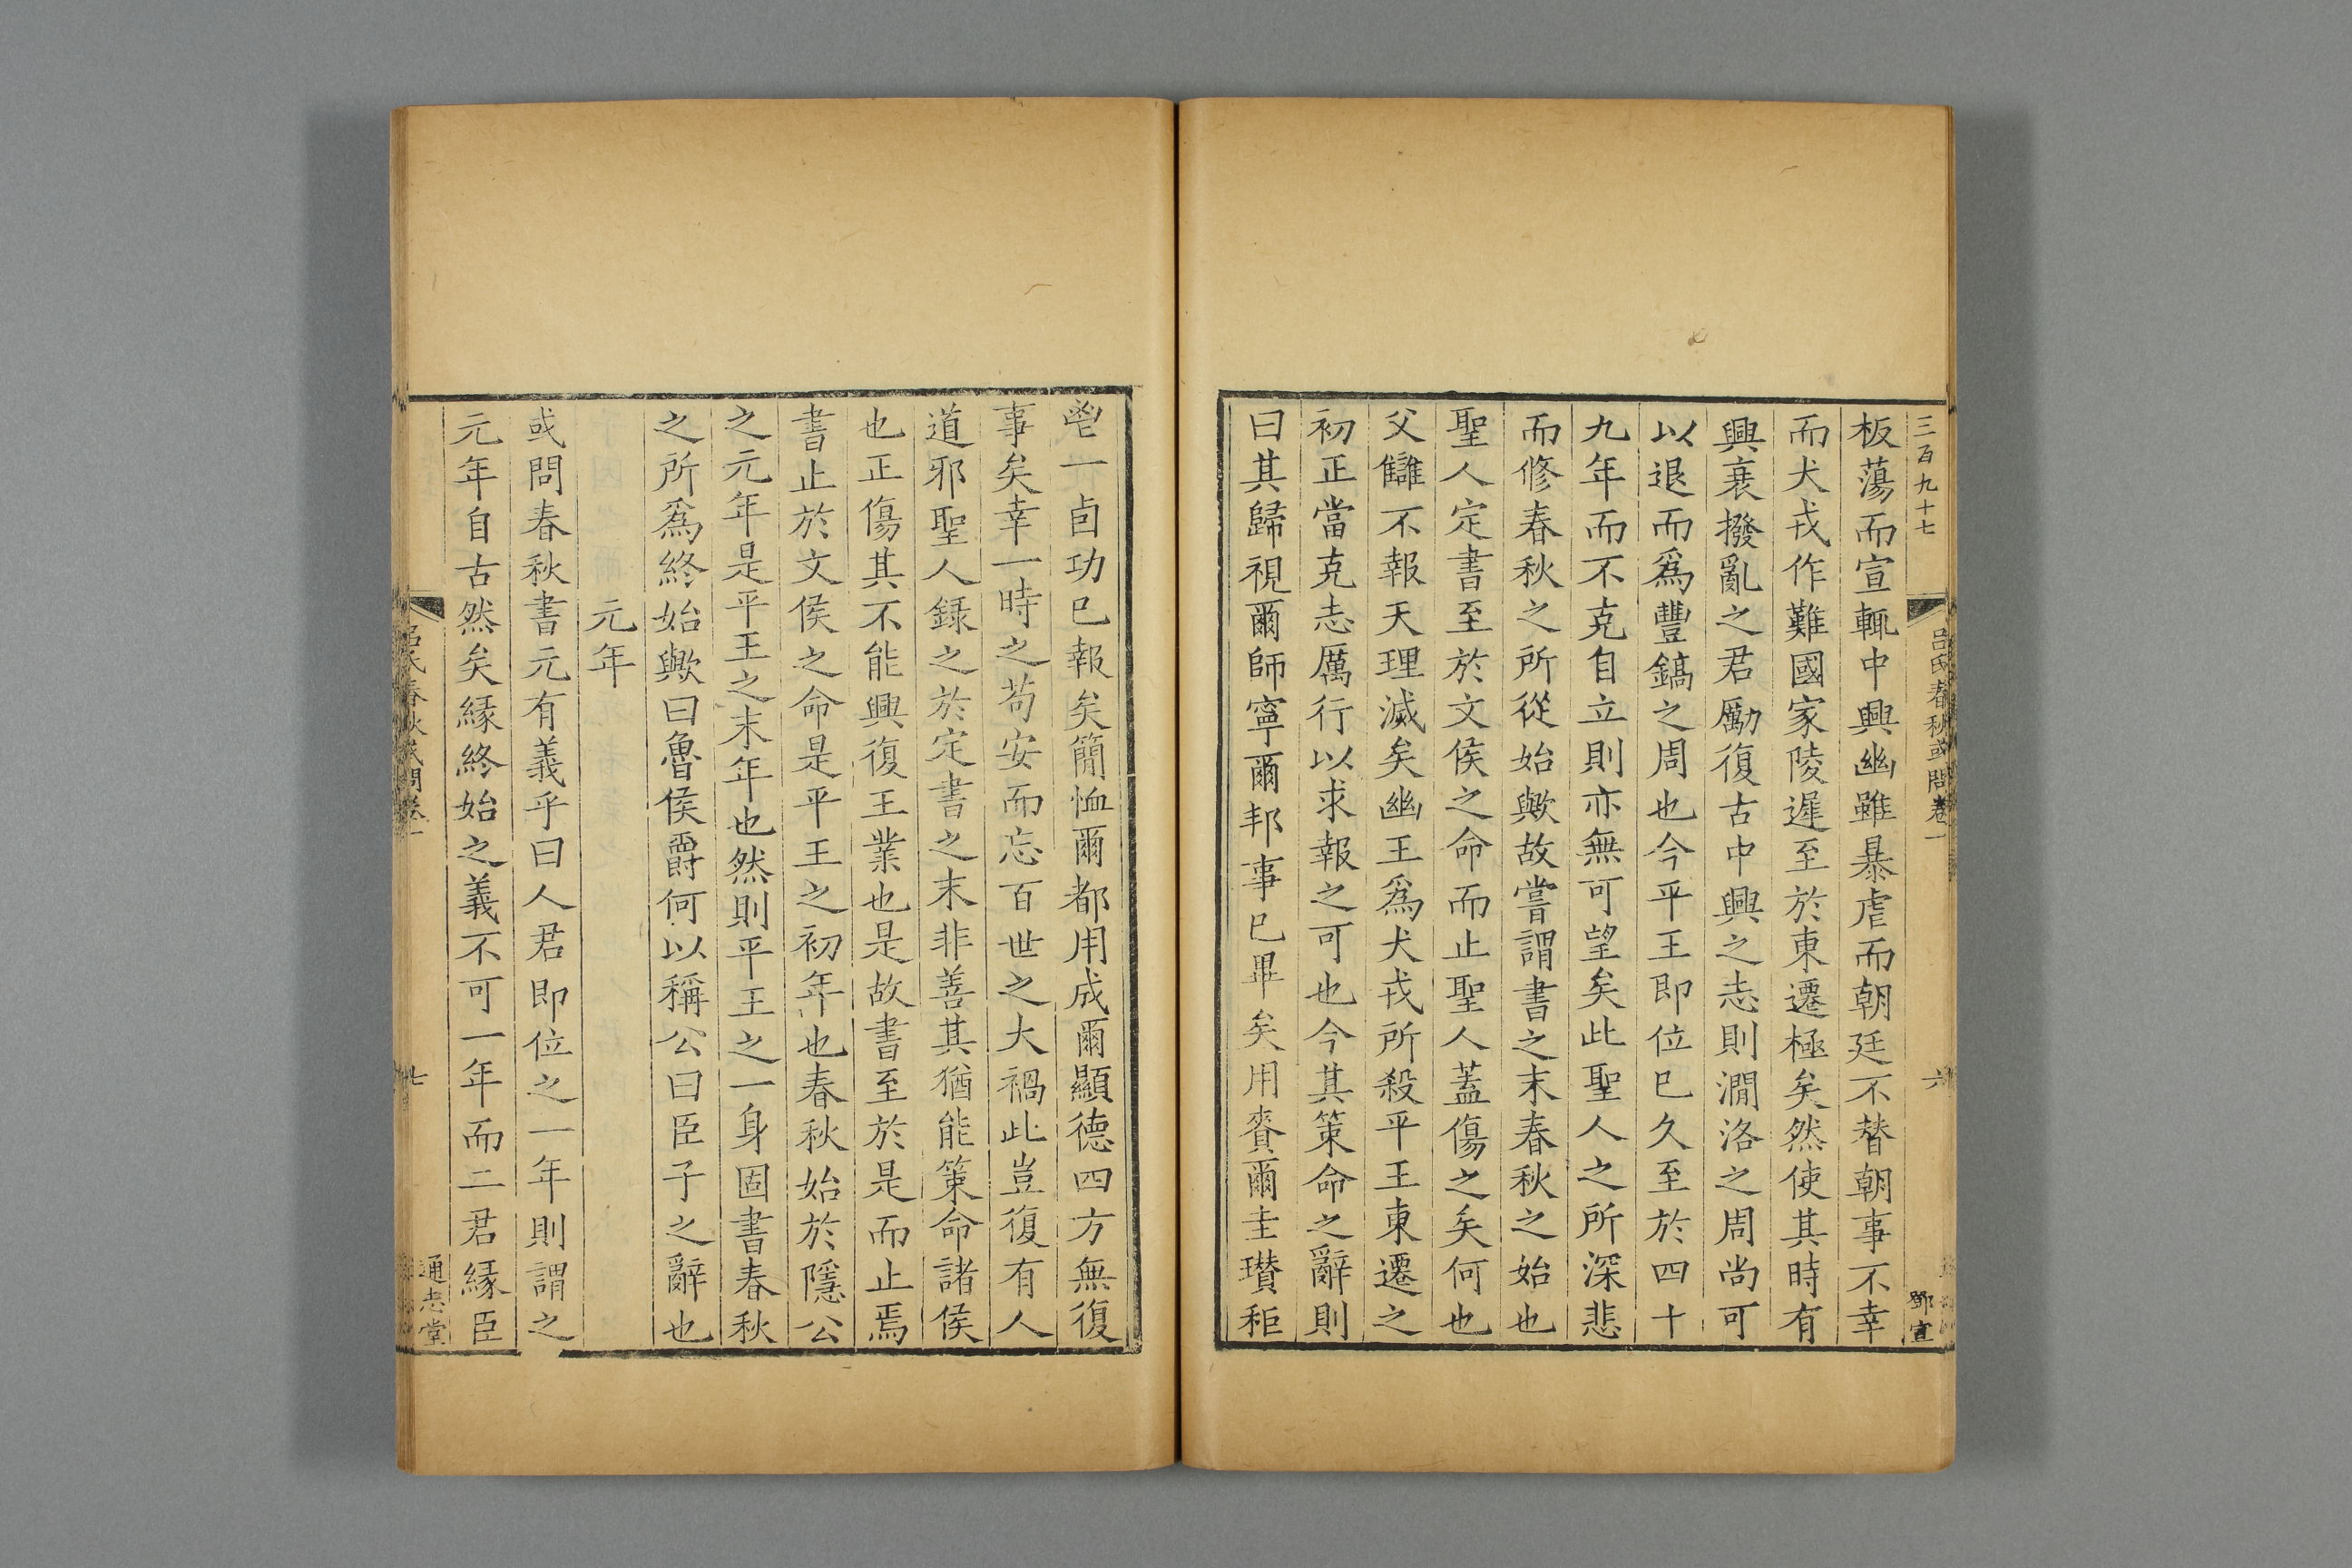 三百九十七
吕氏春秋或問卷一
六
鄧宣
板蕩而宣輒中興幽雖暴虐而朝廷不替朝事不幸
而犬戎作難國家陵遲至於東遷極矣然使其時有
興衰撥亂之君勵復古中興之志則澗洛之周尚可
以退而爲豐鎬之周也今平王即位已久至於四十
九年而不克自立則亦無可望矣此聖人之所深悲
而修春秋之所從始歟故嘗謂書之末春秋之始也
聖人定書至於文侯之命而止聖人蓋傷之矣何也
父讎不報天理滅矣幽王爲犬戎所殺平王東遷之
初正當克志厲行以求報之可也今其策命之辭則
曰其歸視爾師寧爾邦事已畢矣用賚爾圭瓚秬
鬯一卣功已報矣簡恤爾都用成爾顯德四方無復
事矣幸一時之苟安而忘百世之大禍此豈復有人
道邪聖人録之於定書之末非善其猶能策命諸侯
也正傷其不能興復王業也是故書至於是而止焉
書止於文侯之命是平王之初年也春秋始於隱公
之元年是平王之末年也然則平王之一身固書春秋
之所爲終始歟曰魯侯爵何以稱公曰臣子之辭也
元年
或問春秋書元有義乎曰人君即位之一年則謂之
元年自古然矣緣終始之義不可一年而二君緣臣
吕氏春秋或問卷一
七
通志堂